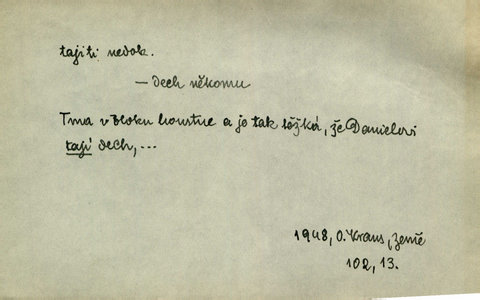 tajiti nedok.
— dech někomu
Tma v bloku houstne a je tak těžká, že Danielovi
tají dech, ...
1948, O. Kraus, Země
102, 13.